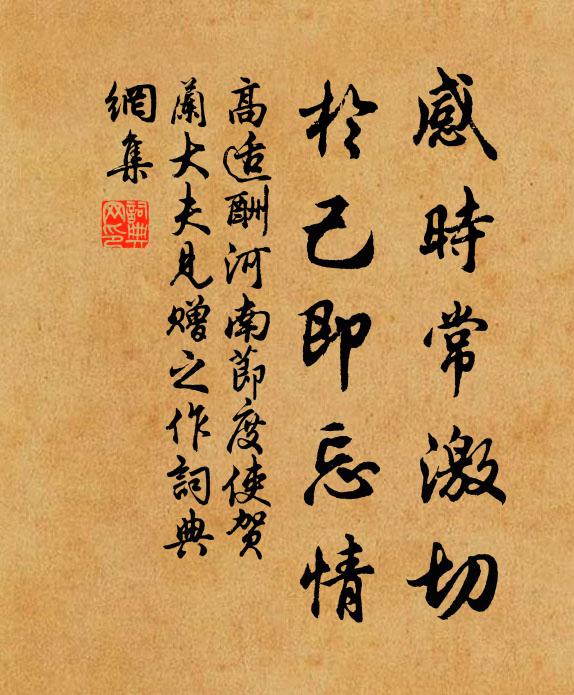 感時常激切
於己即忘情
高适酬河南節度使贺
蘭大夫見赠之作詞典
網集
詞典
网印